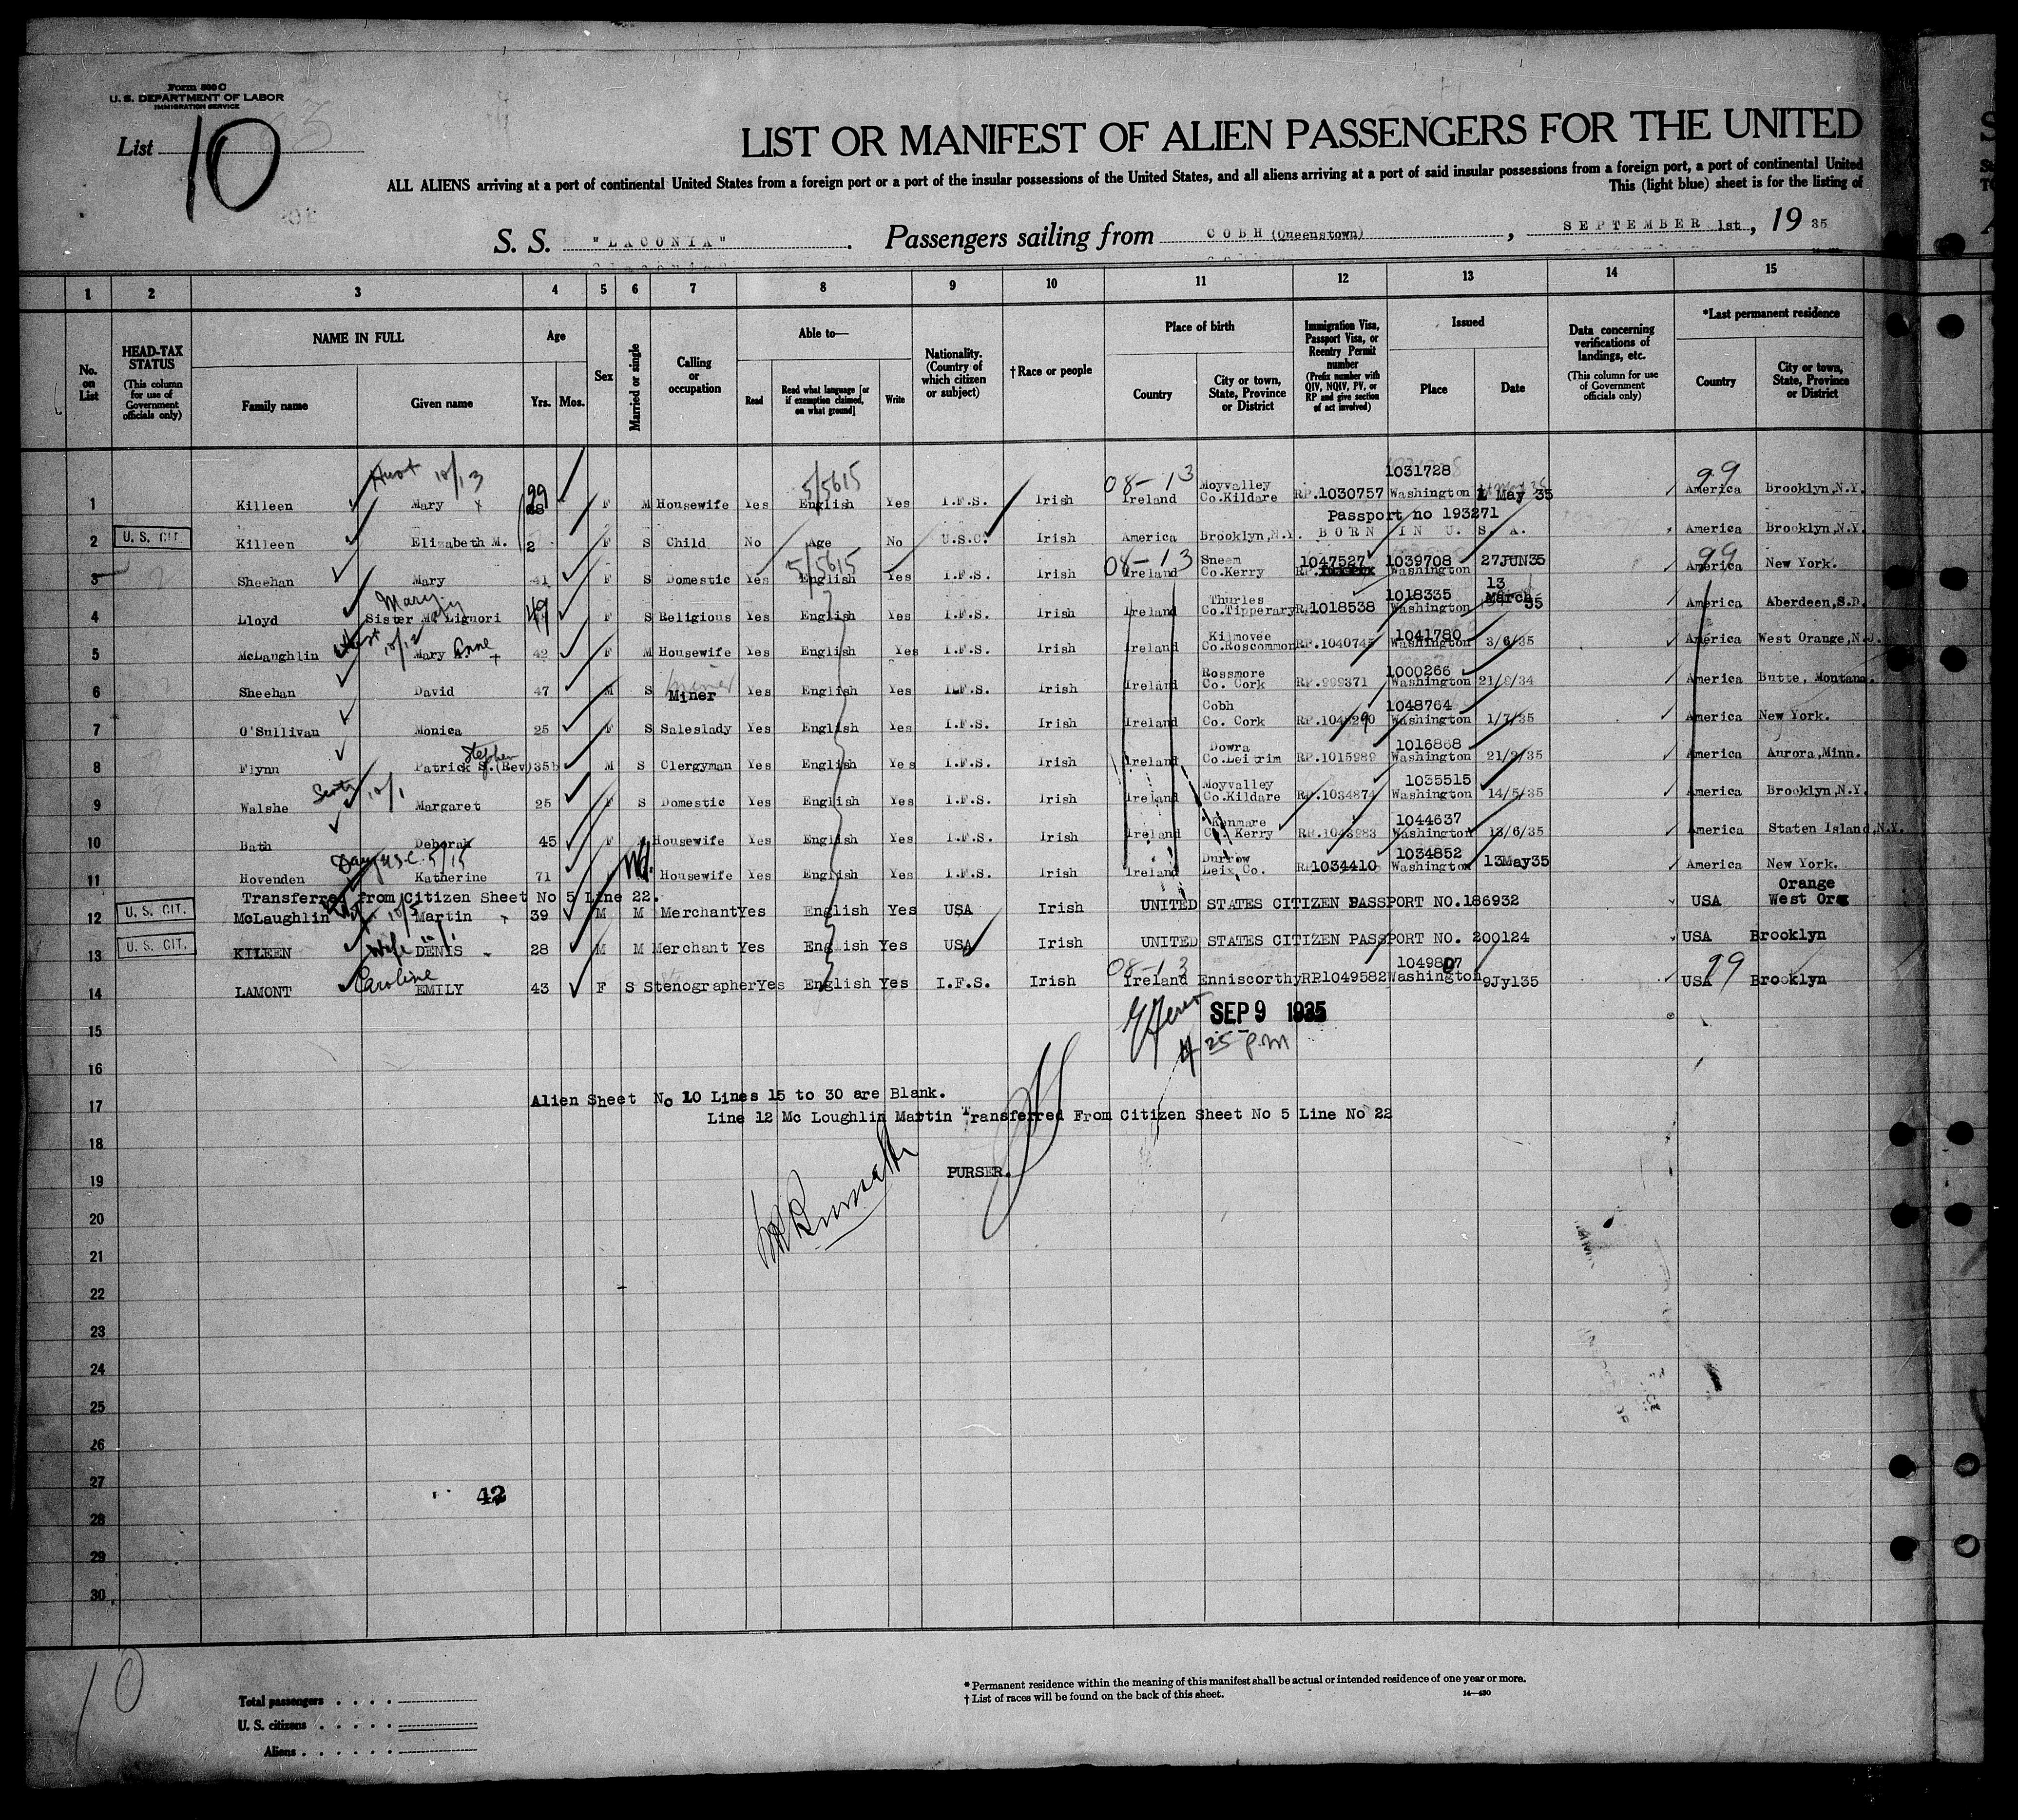 Form 500 C
U. S. DEPARTMENT OF LABOR
IMMIGRATION SERVICE
List 10
LIST OR MANIFEST OF ALIEN PASSENGERS FOR THE UNITED
ALL ALIENS arriving at a port of continental United States from a foreign port or a port of the insular possessions of the United States, and all aliens arriving at a port of said insular possessions from a foreign port, a port of continental United
This (light blue) sheet is for the listing of
S. S. "LACONIA". Passengers sailing from COBH (Queenstown), SEPTEMBER 1st, 1935
1 2 3 4 5 6 7 8 9 10 11 12 13 14 15
No. on List
HEAD-TAX STATUS (This column for use of Government officials only)
NAME IN FULL
Family name
Given name
Age
Yrs. Mos.
Sex
Married or single
Calling or occupation
Able to—
Read
Read what language [or if exemption claimed, on what ground]
Write
Nationality. (Country of which citizen or subject)
†Race or people
Place of birth
Country
City or town, State, Province or District
Immigration Visa, Passport Visa, or Reentry Permit number (Prefix number with QIV, NQIV, PV, or RP and give section of act involved)
Issued
Place
Date
Data concerning verifications of landings, etc. (This column for use of Government officials only)
*Last permanent residence
Country
City or town, State, Province or District
10/13 5/5615 08-13 1031728 99
1 Killeen Mary x 29 F M Housewife Yes English Yes I.F.S. Irish Ireland Moyvalley Co.Kildare RP.1030757 Washington May 35 America Brooklyn,N.Y.
Passport no 193271
2 U. S. CIT. Killeen Elizabeth M. 2 F S Child No Age No U.S.C. Irish America Brooklyn,N.Y. BORN IN U. S. A. America Brooklyn,N.Y.
5/5615 08-13 1047527 1039708 99
3 Sheehan Mary 41 F S Domestic Yes English Yes I.F.S. Irish Ireland Sneem Co.Kerry RP. Washington 27JUN35 America New York.
Mary 1018335
4 Lloyd Sister M. Liguori 49 F S Religious Yes English Yes I.F.S. Irish Ireland Thurles Co.Tipperary RP.1018538 Washington 13 March 35 America Aberdeen,S.D.
10/12 Anne 1041780
5 McLaughlin Mary 42 F M Housewife Yes English Yes I.F.S. Irish Ireland Kilmovee Co.Roscommon RP.1040745 Washington 3/6/35 America West Orange,N.J.
1000266
6 Sheehan David 47 M S Miner Yes English Yes I.F.S. Irish Ireland Rossmore Co. Cork RP.999371 Washington 21/9/34 America Butte, Montana.
1048764
7 O'Sullivan Monica 25 F S Saleslady Yes English Yes I.F.S. Irish Ireland Cobh Co. Cork Washington 1/7/35 America New York.
Stephen 1016868
8 Flynn Patrick S.(Rev) 35 M S Clergyman Yes English Yes I.F.S. Irish Ireland Dowra Co.Leitrim RP.1015989 Washington 21/2/35 America Aurora,Minn.
10/1 1035515
9 Walshe Margaret 25 F S Domestic Yes English Yes I.F.S. Irish Ireland Moyvalley Co.Kildare RP.1034874 Washington 14/5/35 America Brooklyn,N.Y.
1044637
10 Bath Deborah 45 F Housewife Yes English Yes I.F.S. Irish Ireland Kenmare Co. Kerry RP.1043983 Washington 13/6/35 America Staten Island,N.Y.
5/15 1034852
11 Hovenden Katherine 71 Wd. Housewife Yes English Yes I.F.S. Irish Ireland Durrow Leix Co. RP.1034410 Washington 13May35 America New York.
Transferred from Citizen Sheet No 5 Line 22.
12 U. S. CIT. McLaughlin Martin 39 M M Merchant Yes English Yes USA Irish UNITED STATES CITIZEN PASSPORT NO.186932 USA Orange West Org
13 U. S. CIT. KILEEN DENIS 28 M M Merchant Yes English Yes USA Irish UNITED STATES CITIZEN PASSPORT NO. 200124 USA Brooklyn
Caroline 08-13 1049807 99
14 LAMONT EMILY 43 F S Stenographer Yes English Yes I.F.S. Irish Ireland Enniscorthy RP1049582 Washington 9Jyl35 USA Brooklyn
15 SEP 9 1935
4 25 p.m
16
Alien Sheet No 10 Lines 15 to 30 are Blank.
17 Line 12 Mc Loughlin Martin Transferred From Citizen Sheet No 5 Line No 22
18
19 PURSER.
20
21
22
23
24
25
26
27 42
28
29
30
10
Total passengers
U. S. citizens
Aliens
* Permanent residence within the meaning of this manifest shall be actual or intended residence of one year or more.
† List of races will be found on the back of this sheet. 14—430